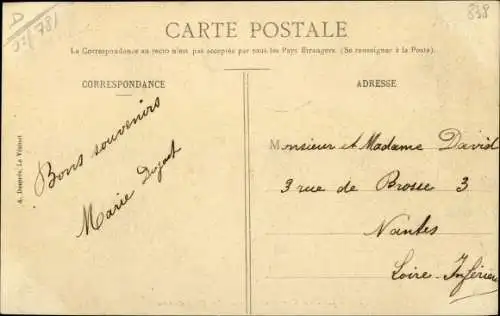 CARTE POSTALE
La Correspondance au recto n'est pas acceptée par tous les Pays Étrangers. (Se renseigner à la Poste).
CORRESPONDANCE
Bons souvenirs
Marie
ADRESSE
Monsieur et Madame David
3 rue de Brosse 3
Nantes
Loire-Inférieure
838
D